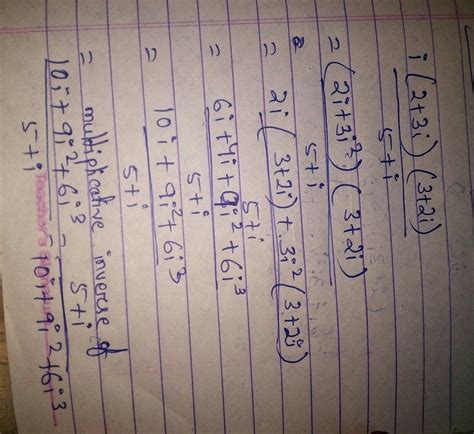 i(2+3i)(3+2i)
5+i
= (2i+3i²)(3+2i)
5+i
= 2i(3+2i)+3i²(3+2i)
5+i
= 6i+4i+9i²+6i³
5+i
= 10i+9i²+6i³
5+i
= multiplicative inverse of
10i+9i²+6i³ = 5+i
5+i 10i+9i²+6i³